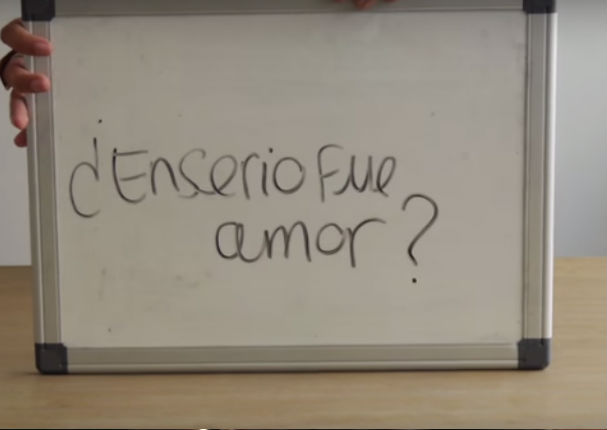 ¿Enserio fue
amor?